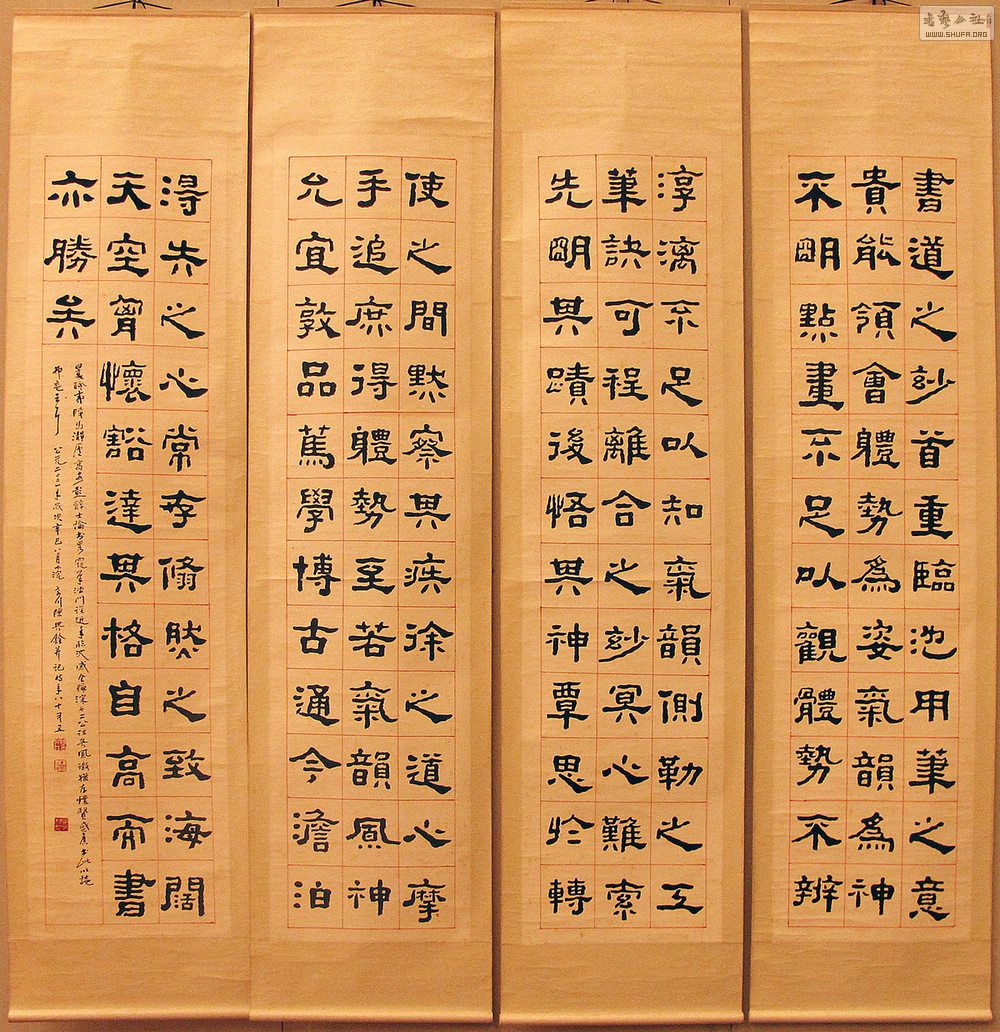 書道之妙首重臨池用筆之意
貴能領會體勢為姿氣韻為神
不明點畫不足以觀體勢不辨
淳漓不足以知氣韻側勒之工
筆訣可程離合之妙冥心難索
先明其蹟後悟其神覃思於轉
使之間默察其疾徐之道心摩
手追庶得體勢至若氣韻風神
允宜敦品篤學博古通今澹泊
得失之心常存翛然之致海闊
天空胷懷豁達其格自高而書
亦勝矣
公元二〇〇一年歲次辛巳八月 并記時年八十有五
WWW.SHUFA.ORG